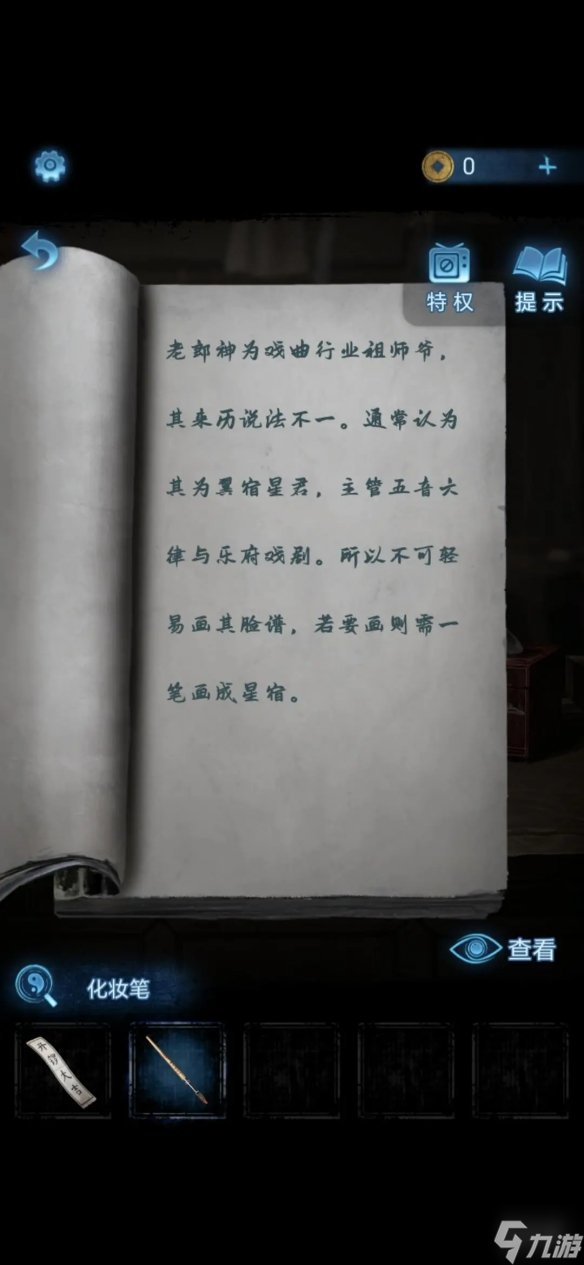 0
特权
提示
老郎神为戏曲行业祖师爷，
其来历说法不一。通常认为
其为翼宿星君，主管五音六
律与乐府戏剧。所以不可轻
易画其脸谱，若要画则需一
笔画成星宿。
查看
化妆笔
开锣大吉
九游